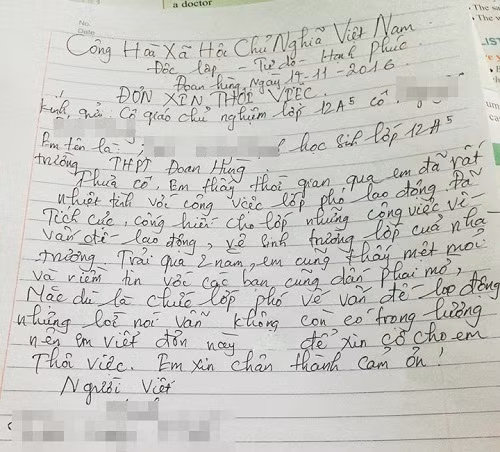 a doctor
No
Date
Công Hoà Xã Hôi Chủ Nghĩa Việt Nam
Đôc lâp - Tự do - Hanh Phúc
Đoan hùng, Ngày 14-11-2016
ĐƠN XIN THÔI VIÊC
Kính gửi: Cô giáo chủ nghiệm lớp 12A5 cô
Em tên là: học sinh lớp 12A5
trường THPT Đoan Hùng
Thưa cô, Em thấy thời gian qua em đã rất
nhiệt tình với công viêc lớp phó lao động. Đã
Tích cực, cống hiến cho lớp những công việc về
vấn đề lao động, vê sinh trường lớp của nhà
trường. Trải qua 2 năm, em cũng thấy mệt mỏi
và niềm tin với các ban cũng dần phai mờ,
Mắc dù là chức lớp phó về vấn đề lao động
nhưng lời nói vẫn không còn có trong lượng
nên em viết đơn này để xin cô cho em
Thôi việc. Em xin chân thành cảm ơn!
Người viết